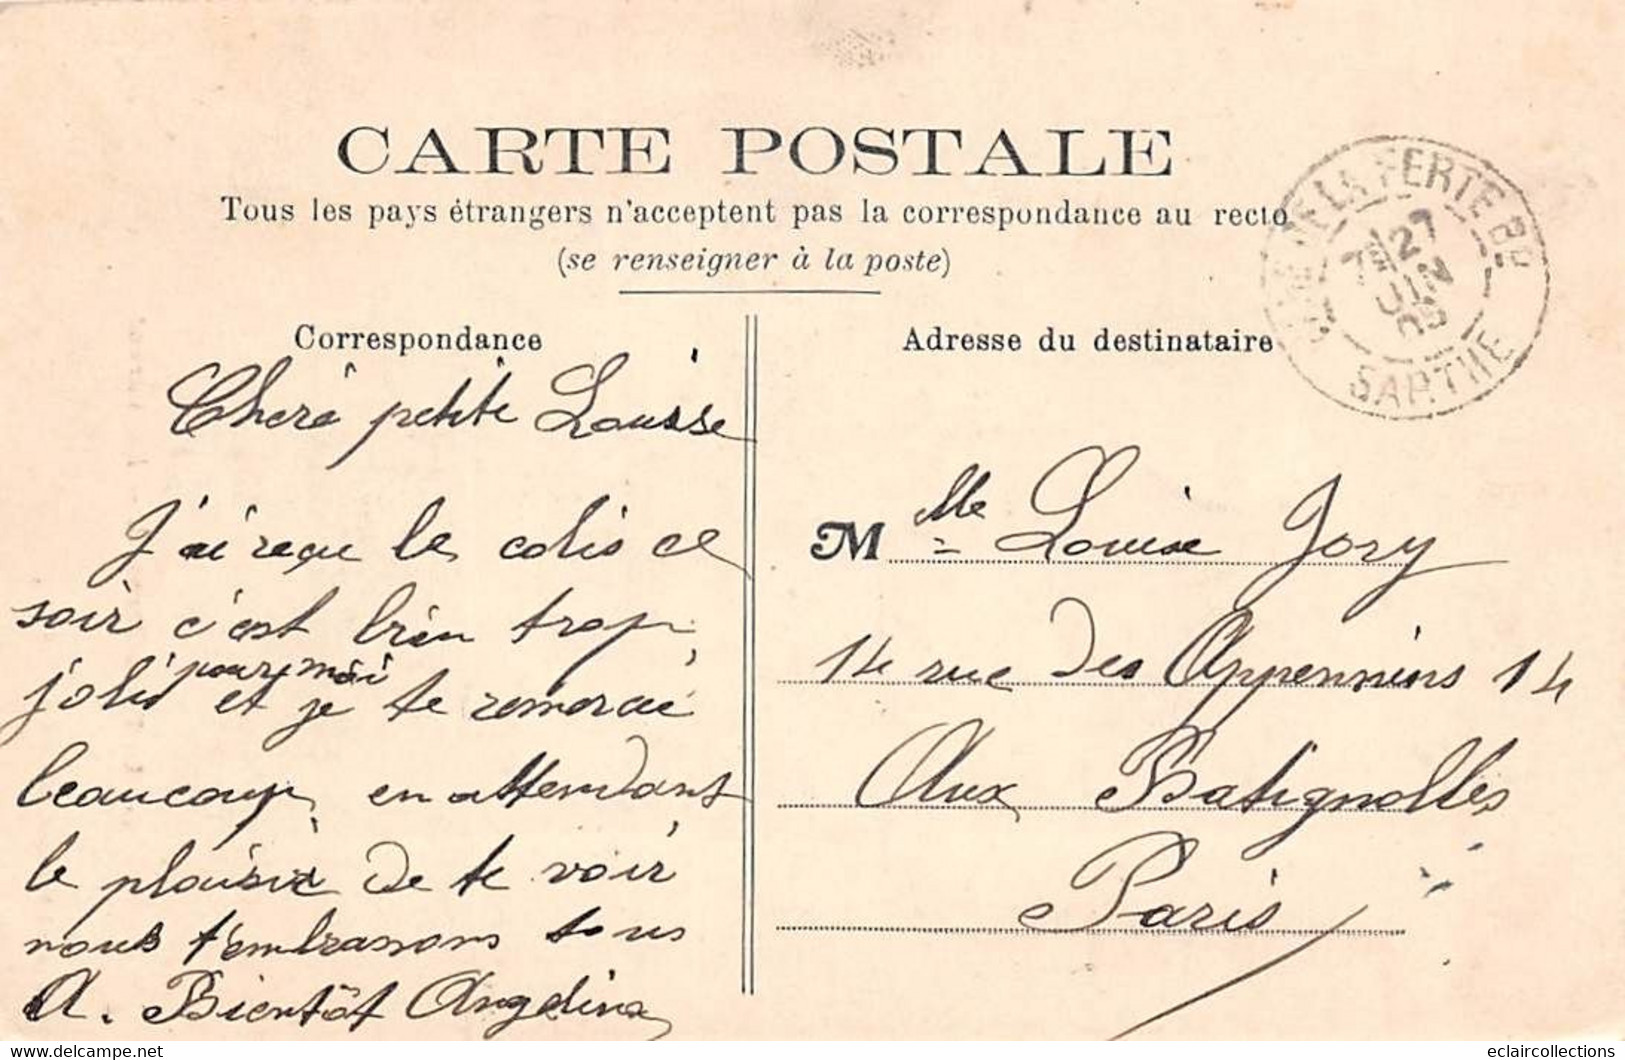 CARTE POSTALE
Tous les pays étrangers n'acceptent pas la correspondance au recto
(se renseigner à la poste)
Correspondance
Chere petite Louisse
J'ai reçu le colis ce
soir c'est bien trop
joli pour moi et je te remerai
beaucoup, en attendant
le plaisir de te voir
nous t'embrassons tous
A. Bientôt Angelina
Adresse du destinataire
Mlle Louise Jory
14 rue des Appennins 14
Aux Batignolles
Paris
LA FERTE BD
27
JUIN
SARTHE
eclaircollections
www.delcampe.net